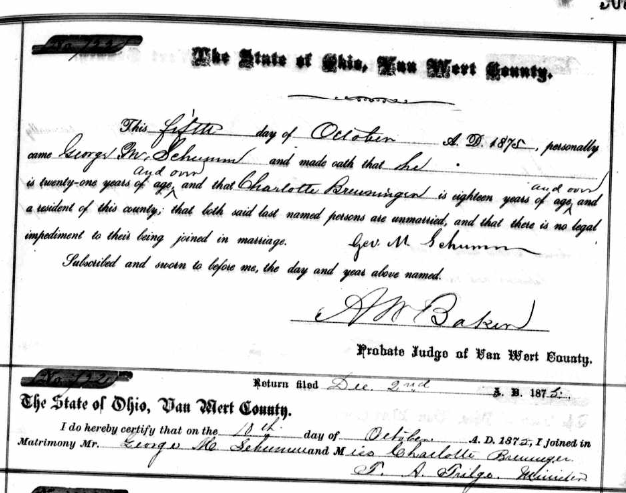 The State of Ohio, Van Wert County.
This fifth day of October A. D. 1875, personally
came George M. Schumm and made oath that he
and over and over
is twenty-one years of age, and that Charlotte Breuninger is eighteen years of age, and
a resident of this county; that both said last named persons are unmarried, and that there is no legal
impediment to their being joined in marriage. Geo. M Schumm
Subscribed and sworn to before me, the day and year above named.
A W Baker
Probate Judge of Van Wert County.
Return filed Dec 2nd A. D. 1875
The State of Ohio, Van Wert County.
I do hereby certify that on the 10th day of October A. D. 1875, I joined in
Matrimony Mr. George M. Schumm and Miss Charlotte Breuninger
Minister